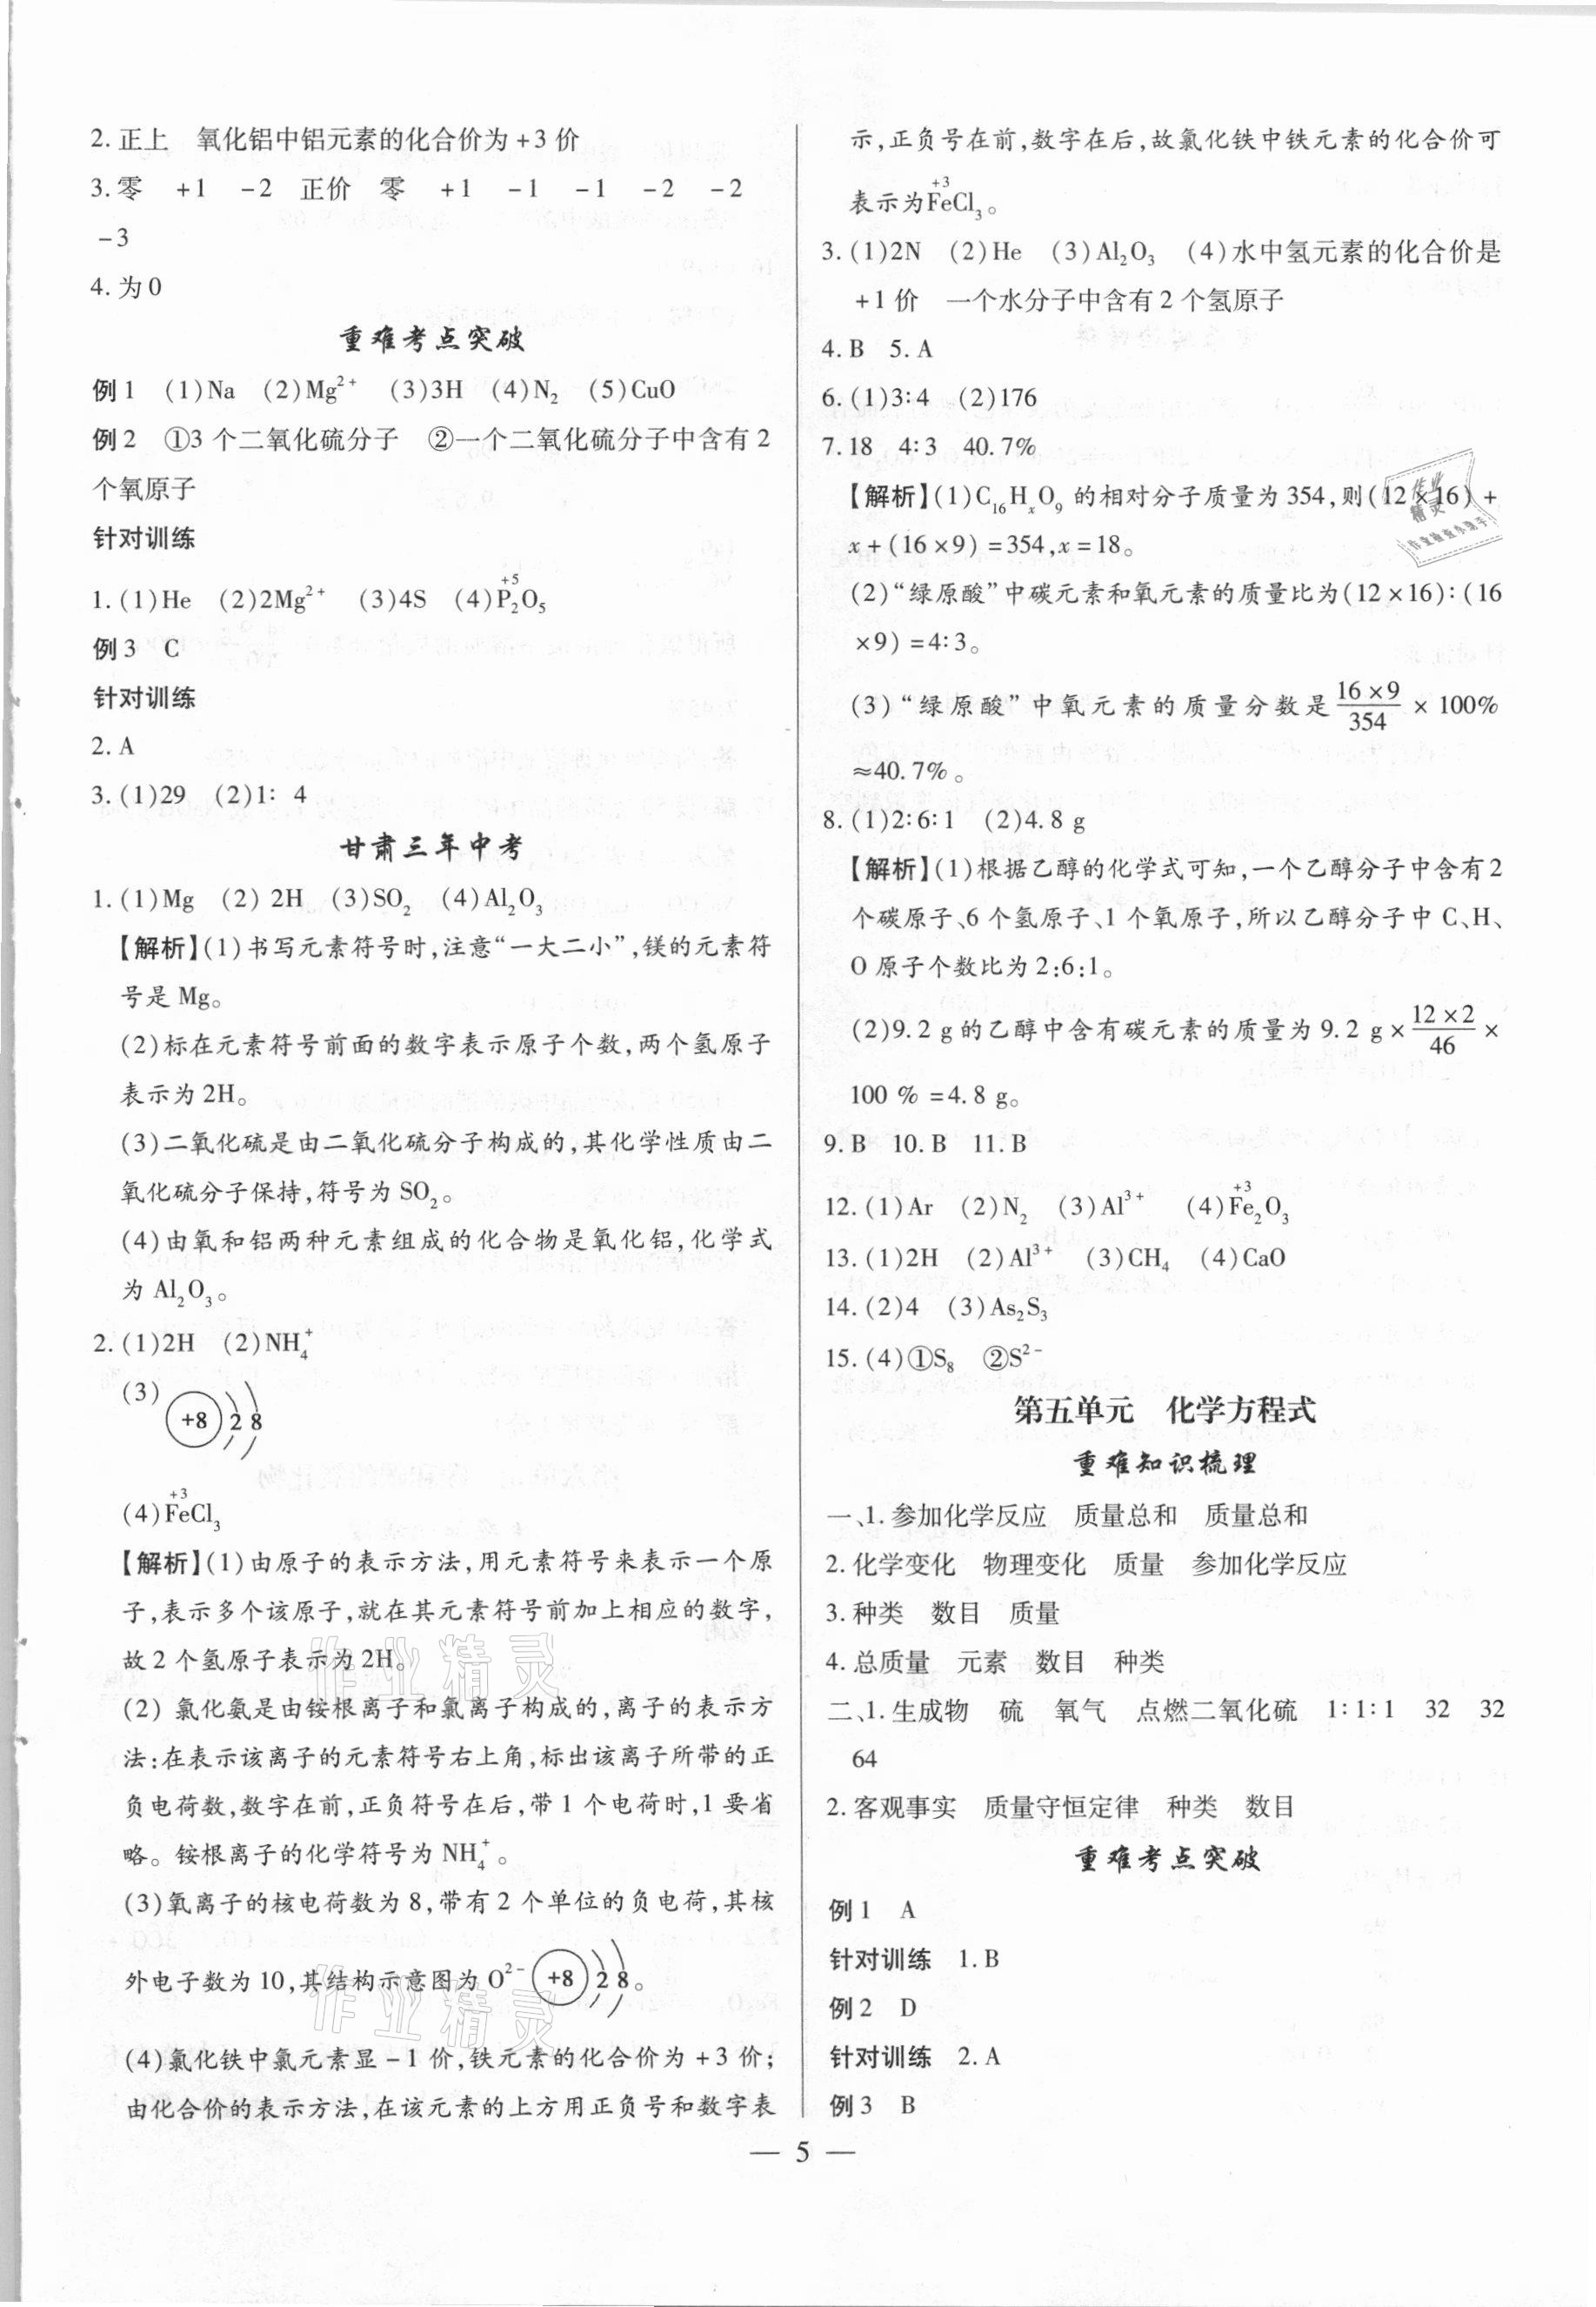 2. 正上 氧化铝中铝元素的化合价为+3价
3. 零 +1 -2 正价 零 +1 -1 -1 -2 -2
-3
4. 为0
重难考点突破
例1 (1)Na (2)Mg²⁺ (3)3H (4)N₂ (5)CuO
例2 ①3个二氧化硫分子 ②一个二氧化硫分子中含有2
个氧原子
针对训练
1. (1)He (2)2Mg²⁺ (3)4S (4)P₂O₅(P上方+5)
例3 C
针对训练
2. A
3. (1)29 (2)1∶4
甘肃三年中考
1. (1)Mg (2) 2H (3)SO₂ (4)Al₂O₃
【解析】(1)书写元素符号时,注意“一大二小”,镁的元素符
号是Mg。
(2)标在元素符号前面的数字表示原子个数,两个氢原子
表示为2H。
(3)二氧化硫是由二氧化硫分子构成的,其化学性质由二
氧化硫分子保持,符号为SO₂。
(4)由氧和铝两种元素组成的化合物是氧化铝,化学式
为Al₂O₃。
2. (1)2H (2)NH₄⁺
(3) +8 2 8
+3
(4)FeCl₃
【解析】(1)由原子的表示方法,用元素符号来表示一个原
子,表示多个该原子,就在其元素符号前加上相应的数字,
故2个氢原子表示为2H。
(2) 氯化氨是由铵根离子和氯离子构成的,离子的表示方
法:在表示该离子的元素符号右上角,标出该离子所带的正
负电荷数,数字在前,正负符号在后,带1个电荷时,1要省
略。铵根离子的化学符号为NH₄⁺。
(3)氧离子的核电荷数为8,带有2个单位的负电荷,其核
外电子数为10,其结构示意图为O²⁻ +8 2 8。
(4)氯化铁中氯元素显-1价,铁元素的化合价为+3价;
由化合价的表示方法,在该元素的上方用正负号和数字表
示,正负号在前,数字在后,故氯化铁中铁元素的化合价可
+3
表示为FeCl₃。
3. (1)2N (2)He (3)Al₂O₃ (4)水中氢元素的化合价是
+1价 一个水分子中含有2个氢原子
4. B 5. A
6. (1)3∶4 (2)176
7. 18 4∶3 40.7%
【解析】(1)C₁₆HₓO₉的相对分子质量为354,则(12×16)+
x+(16×9)=354,x=18。
(2)“绿原酸”中碳元素和氧元素的质量比为(12×16)∶(16
×9)=4∶3。
(3)“绿原酸”中氧元素的质量分数是16×9/354×100%
≈40.7%。
8. (1)2∶6∶1 (2)4.8 g
【解析】(1)根据乙醇的化学式可知,一个乙醇分子中含有2
个碳原子、6个氢原子、1个氧原子,所以乙醇分子中C、H、
O原子个数比为2∶6∶1。
(2)9.2 g的乙醇中含有碳元素的质量为9.2 g×12×2/46×
100 %=4.8 g。
9. B 10. B 11. B
+3
12. (1)Ar (2)N₂ (3)Al³⁺ (4)Fe₂O₃
13. (1)2H (2)Al³⁺ (3)CH₄ (4)CaO
14. (2)4 (3)As₂S₃
15. (4)①S₈ ②S²⁻
第五单元 化学方程式
重难知识梳理
一、1. 参加化学反应 质量总和 质量总和
2. 化学变化 物理变化 质量 参加化学反应
3. 种类 数目 质量
4. 总质量 元素 数目 种类
二、1. 生成物 硫 氧气 点燃二氧化硫 1∶1∶1 32 32
64
2. 客观事实 质量守恒定律 种类 数目
重难考点突破
例1 A
针对训练 1. B
例2 D
针对训练 2. A
例3 B
— 5 —
作业精灵
作业精灵
作业
精灵